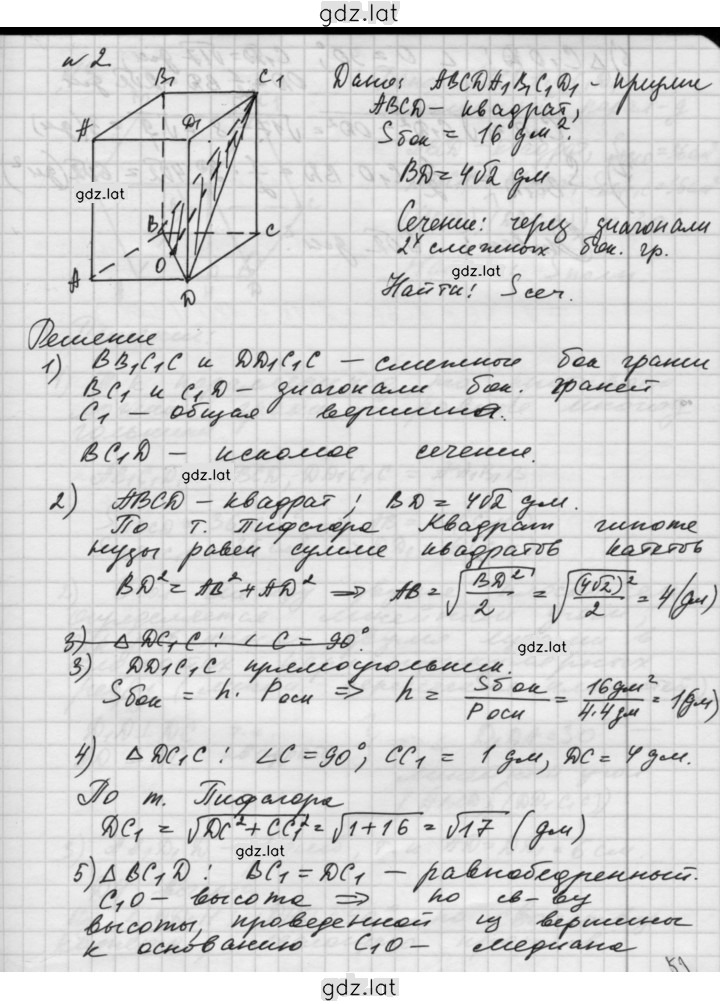 gdz.lat
№2
B₁ C₁
A D₁
gdz.lat
B C
O
A D
Дано: ABCDA₁B₁C₁D₁ - призма
ABCD - квадрат,
Sбок = 16 дм².
BD = 4√2 дм
Сечение: через диагонали
2х смежных бок. гр.
gdz.lat
Найти: Sсеч.
Решение
1) BB₁C₁C и DD₁C₁C — смежные бок грани
BC₁ и C₁D — диагонали бок. граней
C₁ — общая вершина.
BC₁D — искомое сечение.
gdz.lat
2) ABCD - квадрат; BD = 4√2 дм.
По т. Пифагора Квадрат гипоте
нузы равен сумме квадратов катетов
BD² = AB² + AD² => AB = √(BD²/2) = √((4√2)²/2) = 4 (дм)
3) △DC₁C: ∠C = 90°.
gdz.lat
3) DD₁C₁C прямоугольник.
Sбок = h · Pосн => h = Sбок/Pосн = 16дм²/4·4дм = 1(дм)
4) △DC₁C: ∠C = 90°, CC₁ = 1 дм, DC = 4 дм.
По т. Пифагора
DC₁ = √(DC² + CC₁²) = √(1+16) = √17 (дм)
gdz.lat
5) △BC₁D: BC₁ = DC₁ — равнобедренный.
C₁O — высота => по св-ву
высоты, проведенной из вершины
к основанию C₁O — медиана
59
gdz.lat